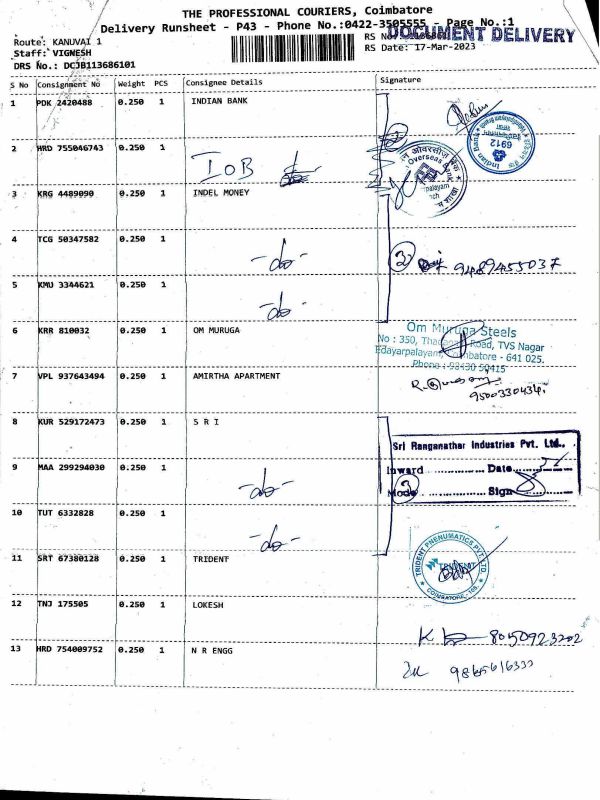 THE PROFESSIONAL COURIERS, Coimbatore
Delivery Runsheet - P43 - Phone No.:0422-3505555 - Page No.:1
DOCUMENT DELIVERY
Route: KANUVAI 1
Staff: VIGNESH
RS Date: 17-Mar-2023
DRS No.: DCJB113686101
S No Consignment No Weight PCS Consignee Details Signature
1 PDK 2420488 0.250 1 INDIAN BANK
6912
2 HRD 755046743 0.250 1 IOB
3 KRG 4489090 0.250 1 INDEL MONEY
4 TCG 50347582 0.250 1 -do-
3 9489455037
5 KMU 3344621 0.250 1 -do-
6 KRR 810032 0.250 1 OM MURUGA
Om Muruga Steels
No : 350, Road, TVS Nagar
Edayarpalayam, Coimbatore - 641 025.
Phone : 93430 50415
7 VPL 937643494 0.250 1 AMIRTHA APARTMENT
9500330434.
8 KUR 529172473 0.250 1 S R I
Sri Ranganathar Industries Pvt. Ltd.,
9 MAA 299294030 0.250 1 -do-
Inward Date
Mode 3 Sign
10 TUT 6332828 0.250 1 -do-
11 SRT 67380128 0.250 1 TRIDENT
TRIDENT PNEUMATICS PVT LTD
TRIDENT
12 TNJ 175505 0.250 1 LOKESH
8050923202
13 HRD 754009752 0.250 1 N R ENGG
9865616333